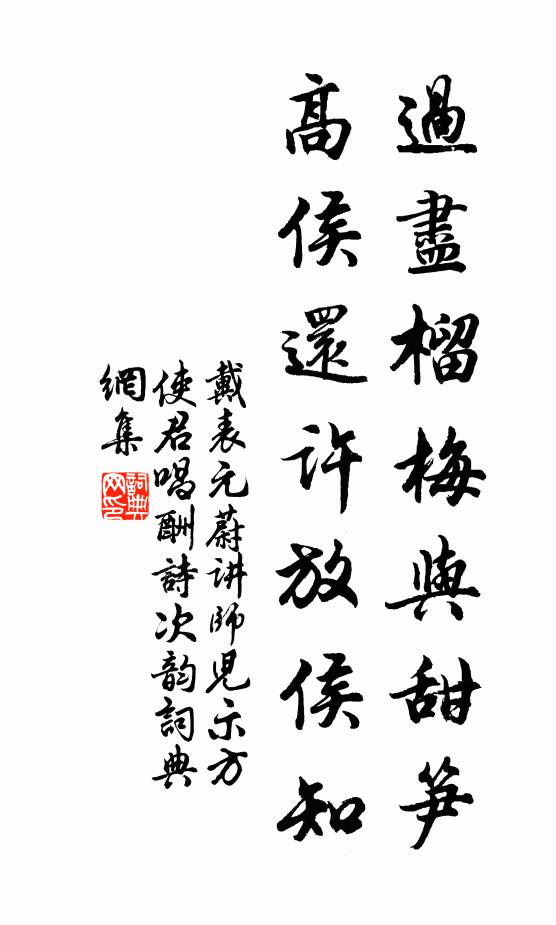 過盡榴梅與甜笋
高侯還許放侯知
戴表元蔚讲師見示方
使君唱酬詩次韵詞典
網集
詞典网印